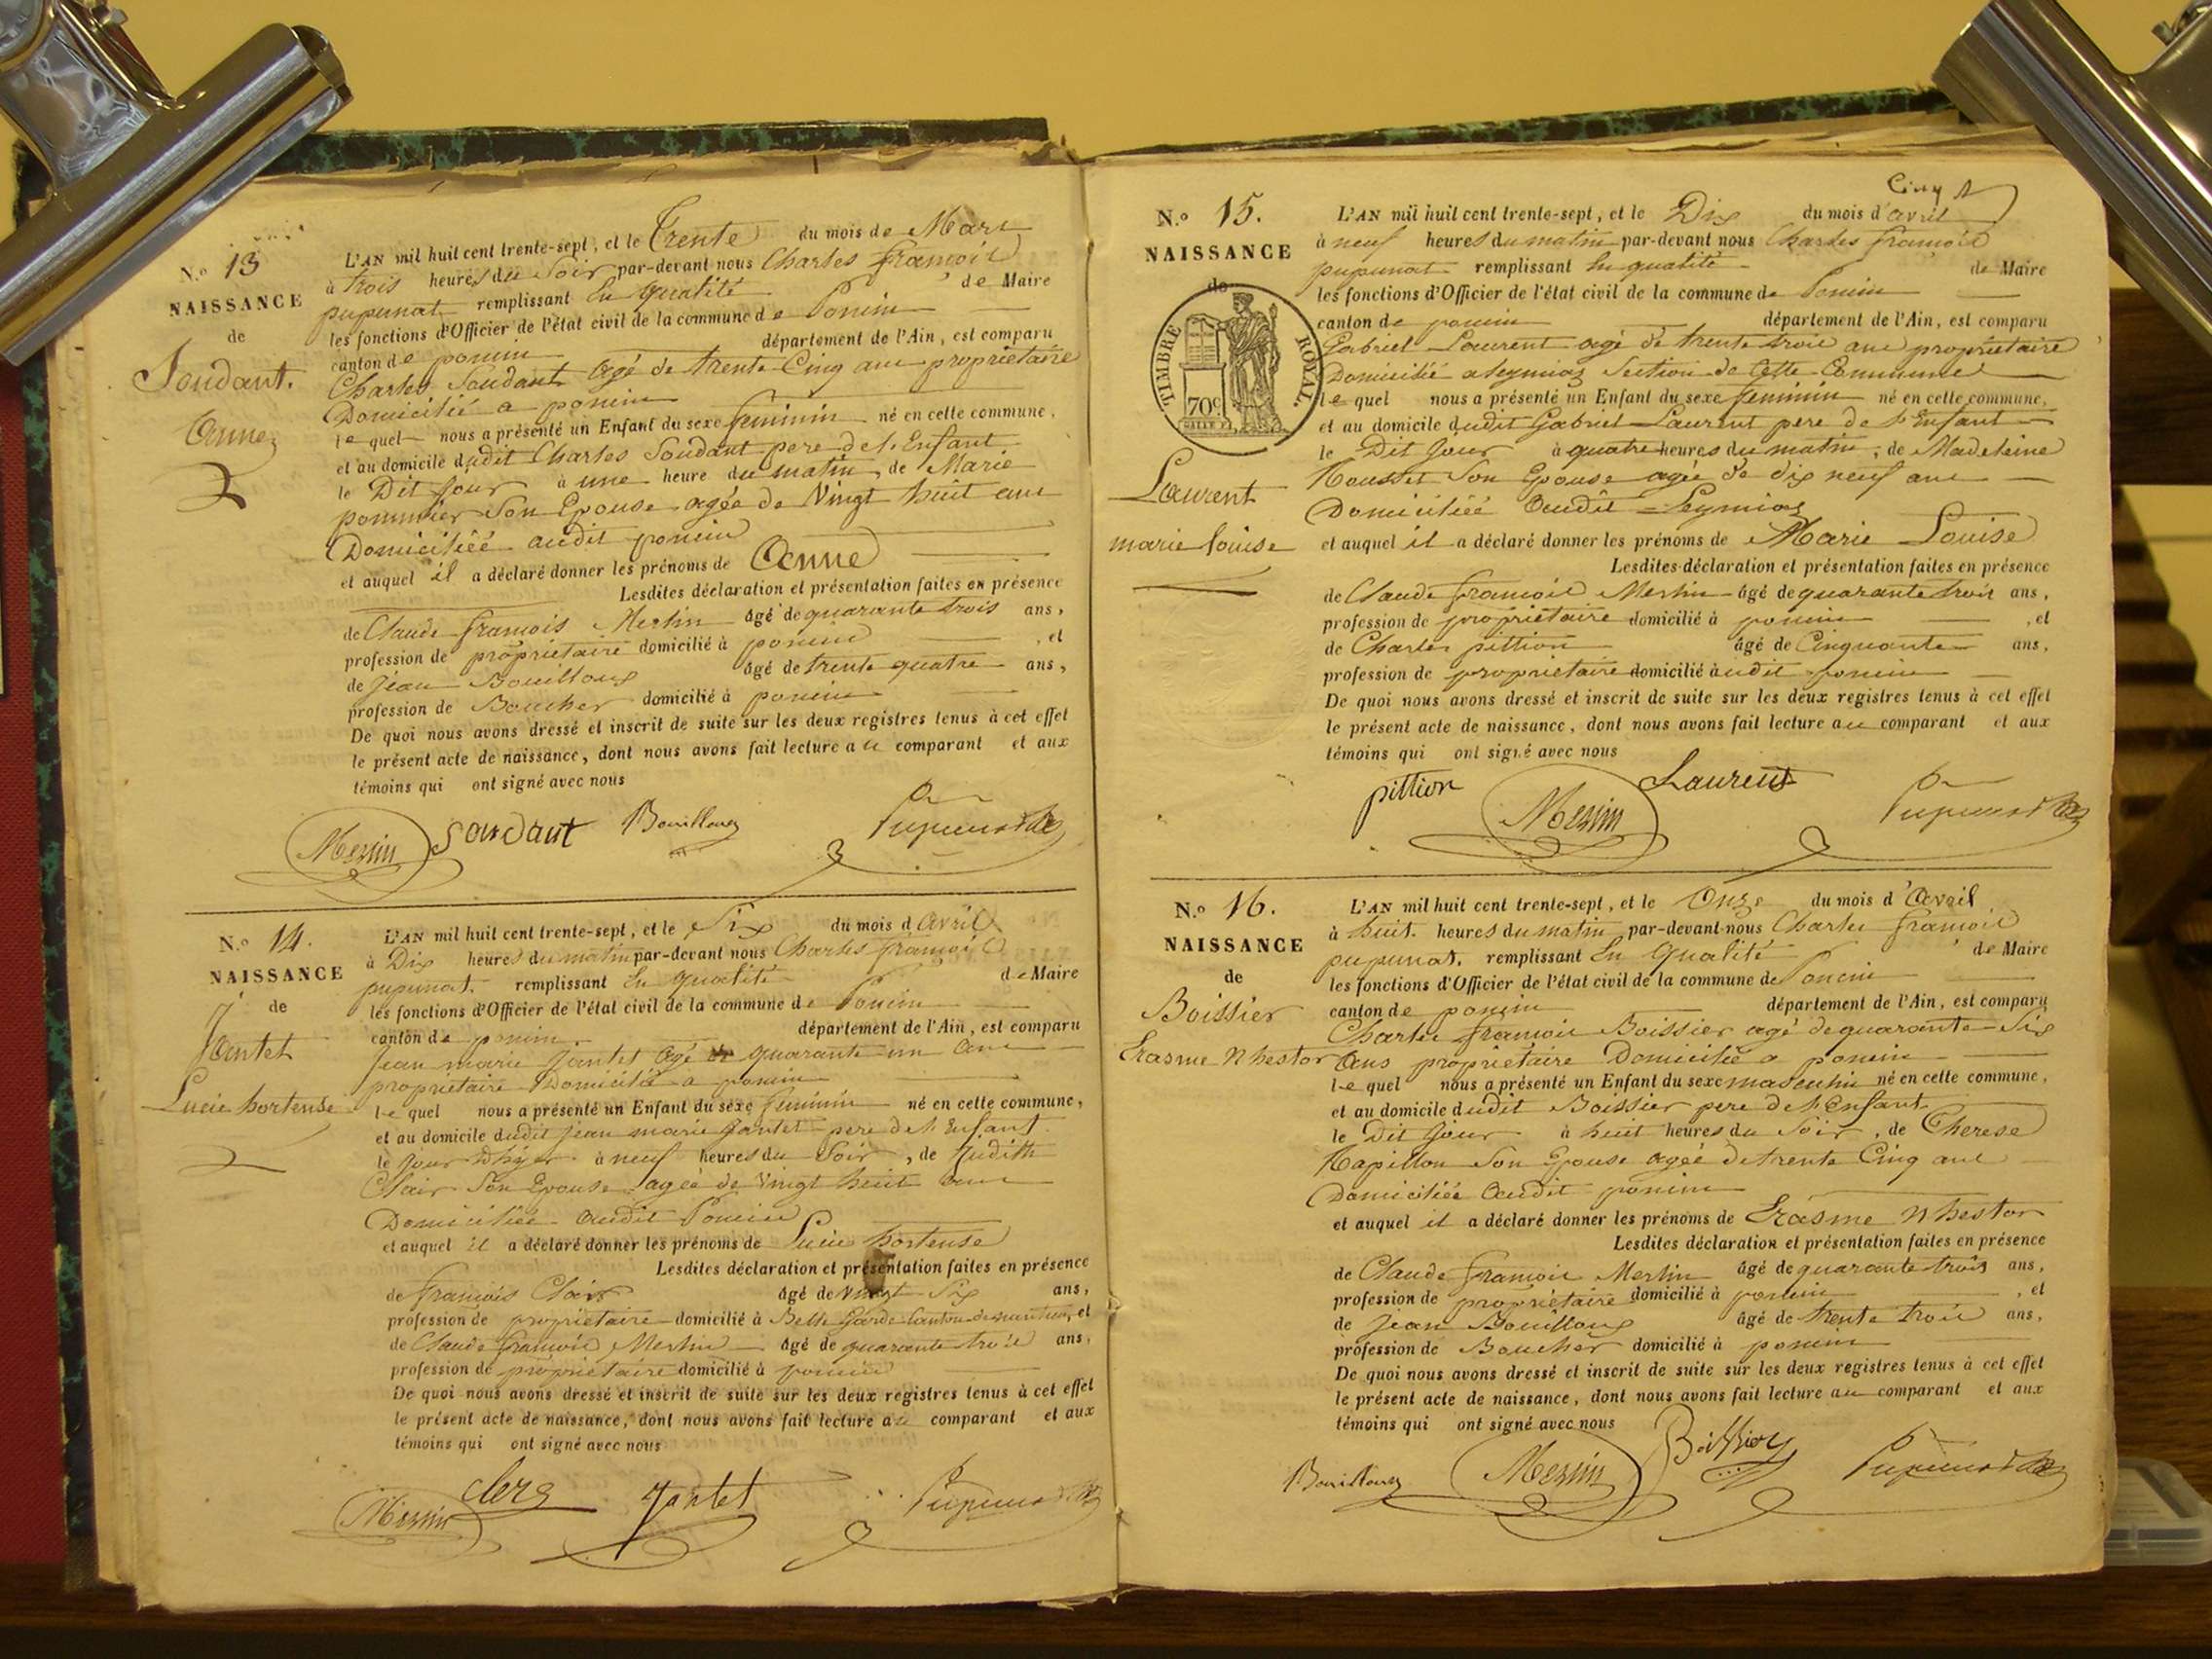 N.º 13
NAISSANCE
de
Soudant.
Anne
L'AN mil huit cent trente-sept, et le Trente du mois de Mars
à trois heures du Soir par-devant nous Charles françois
pupunat remplissant En qualité de Maire
les fonctions d'Officier de l'état civil de la commune de Poncin
canton de poncin département de l'Ain, est comparu
Charles Soudant agé de trente Cinq ans propriétaire
Domicilié a poncin
le quel nous a présenté un Enfant du sexe feminin né en cette commune,
et au domicile dudit Charles Soudant pere de l'Enfant
le Dit jour à une heure du matin, de Marie
pommier Son Epouse agée de Vingt huit ans
Domiciliée audit poncin
et auquel il a déclaré donner les prénoms de Anne
Lesdites déclaration et présentation faites en présence
de Claude françois Merlin âgé de quarante trois ans,
profession de propriétaire domicilié à poncin, et
de Jean Bouilloux âgé de trente quatre ans,
profession de Boucher domicilié à poncin
De quoi nous avons dressé et inscrit de suite sur les deux registres tenus à cet effet
le présent acte de naissance, dont nous avons fait lecture au comparant et aux
témoins qui ont signé avec nous
Merlin Soudant Bouilloux Pupunat
N.º 14.
NAISSANCE
de
Jantet
Lucie hortense
L'AN mil huit cent trente-sept, et le Six du mois d'avril
à Dix heures du matin par-devant nous Charles françois
pupunat. remplissant En qualité de Maire
les fonctions d'Officier de l'état civil de la commune de Poncin
canton de poncin département de l'Ain, est comparu
Jean marie Jantet agé de quarante un ans
propriétaire Domicilié a poncin
le quel nous a présenté un Enfant du sexe feminin né en cette commune,
et au domicile dudit jean marie Jantet pere de l'Enfant
le jour D'hyer à neuf heures du Soir, de Judith
Clair Son Epouse agée de Vingt huit ans
Domiciliée audit Poncin
et auquel il a déclaré donner les prénoms de Lucie hortense
Lesdites déclaration et présentation faites en présence
de françois Clair âgé de vingt Six ans,
profession de propriétaire domicilié à Belle garde Canton de nantua, et
de Claude françois Merlin âgé de quarante trois ans,
profession de propriétaire domicilié à poncin
De quoi nous avons dressé et inscrit de suite sur les deux registres tenus à cet effet
le présent acte de naissance, dont nous avons fait lecture au comparant et aux
témoins qui ont signé avec nous
Merlin Jantet Pupunat
Cinq
N.º 15.
NAISSANCE
de
TIMBRE ROYAL.
70c
Laurent
marie louise
L'AN mil huit cent trente-sept, et le Dix du mois d'avril
à neuf heures du matin par-devant nous Charles françois
pupunat remplissant En qualité de Maire
les fonctions d'Officier de l'état civil de la commune de Poncin
canton de poncin département de l'Ain, est comparu
Gabriel Laurent agé de trente trois ans propriétaire
Domicilié a leymiaz Section de Cette Commune
le quel nous a présenté un Enfant du sexe feminin né en cette commune,
et au domicile dudit Gabriel Laurent pere de l'Enfant
le Dit jour à quatre heures du matin, de Madeleine
Rousset Son Epouse agée de dix neuf ans
Domiciliée audit Leymiaz
et auquel il a déclaré donner les prénoms de Marie Louise
Lesdites déclaration et présentation faites en présence
de Claude françois Merlin âgé de quarante trois ans,
profession de propriétaire domicilié à poncin, et
de Charles pittion âgé de Cinquante ans,
profession de propriétaire domicilié audit poncin
De quoi nous avons dressé et inscrit de suite sur les deux registres tenus à cet effet
le présent acte de naissance, dont nous avons fait lecture au comparant et aux
témoins qui ont signé avec nous
pittion Merlin Laurent Pupunat
N.º 16.
NAISSANCE
de
Boissier
Erasme Nhestor
L'AN mil huit cent trente-sept, et le Onze du mois d'Avril
à huit heures du matin par-devant nous Charles françois
pupunat. remplissant En Qualité de Maire
les fonctions d'Officier de l'état civil de la commune de Poncin
canton de poncin département de l'Ain, est comparu
Charles françois Boissier agé de quarante Six
Ans propriétaire Domicilié a poncin
le quel nous a présenté un Enfant du sexe masculin né en cette commune,
et au domicile dudit Boissier pere de l'Enfant
le Dit jour à huit heures du Soir, de Therese
Rapillon Son Epouse agée de trente Cinq ans
Domiciliée Audit poncin
et auquel il a déclaré donner les prénoms de Erasme Nhestor
Lesdites déclaration et présentation faites en présence
de Claude françois Merlin âgé de quarante trois ans,
profession de propriétaire domicilié à poncin, et
de Jean Bouilloux âgé de trente trois ans,
profession de Boucher domicilié à poncin
De quoi nous avons dressé et inscrit de suite sur les deux registres tenus à cet effet
le présent acte de naissance, dont nous avons fait lecture au comparant et aux
témoins qui ont signé avec nous
Bouilloux Merlin Boissier Pupunat